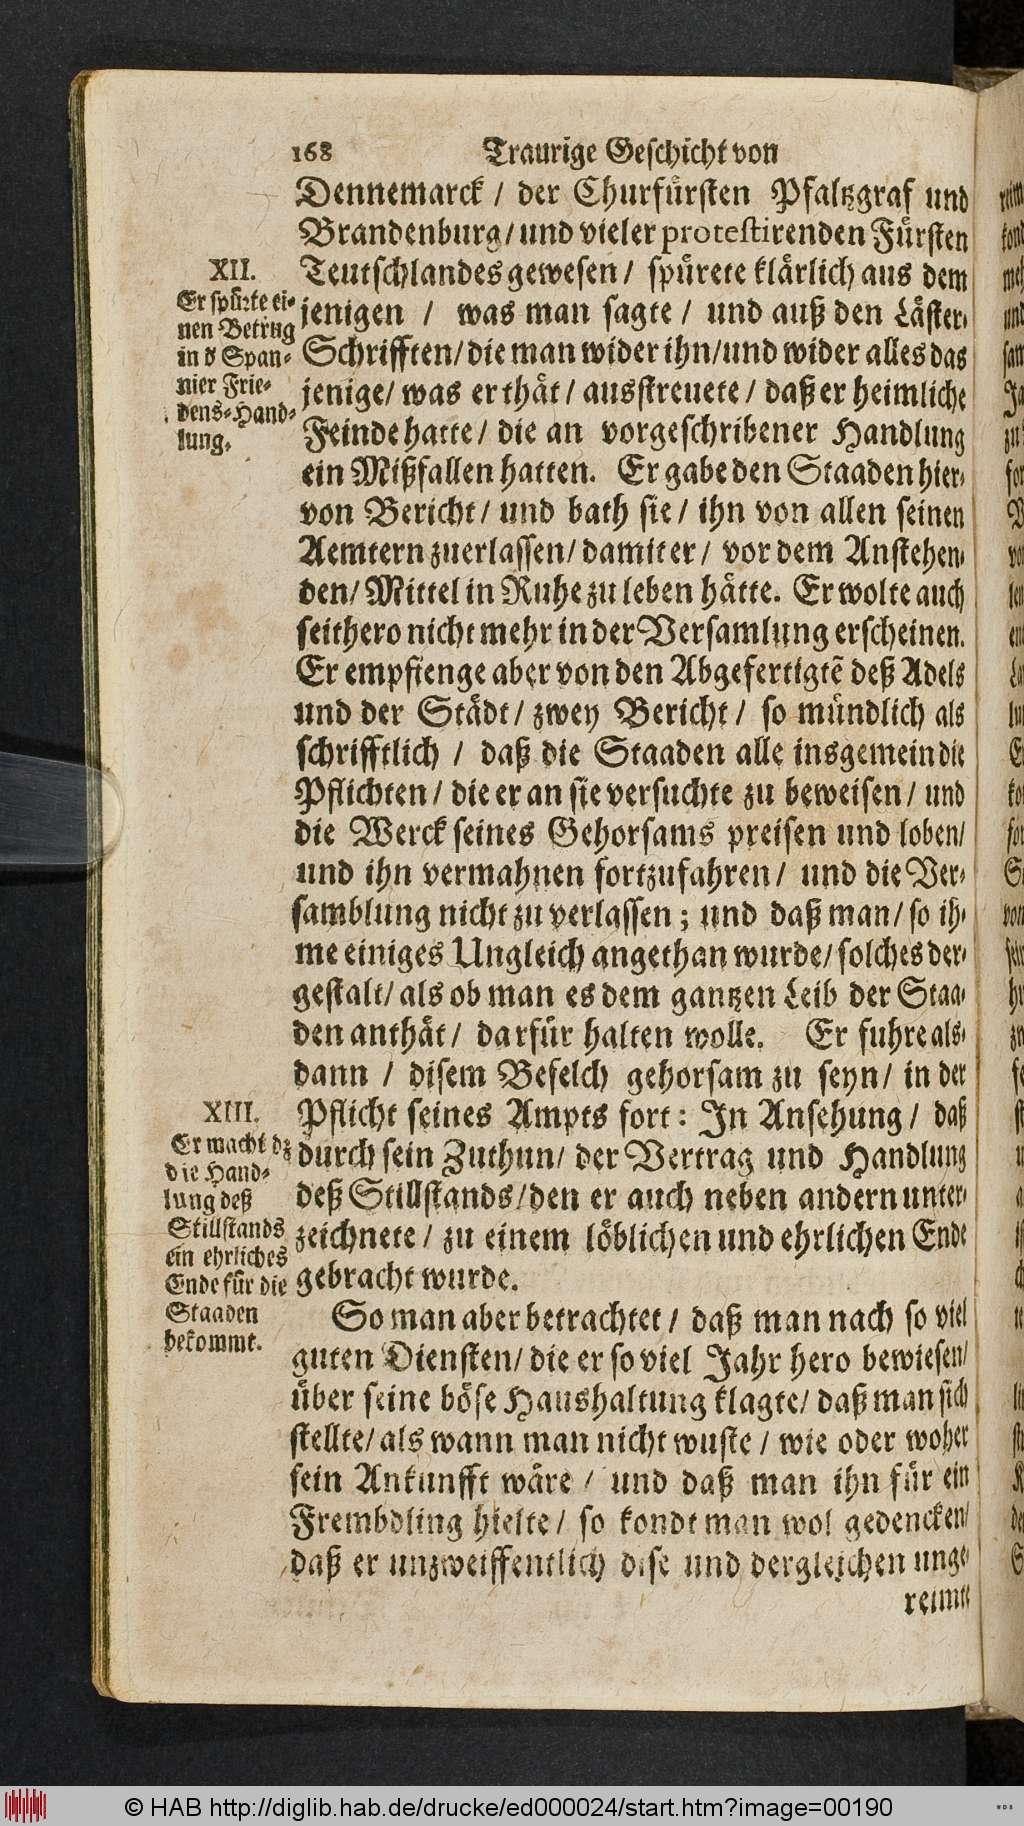 168 Traurige Geschicht von
Dennemarck / der Churfürsten Pfaltzgraf und
Brandenburg / und vieler protestirenden Fürsten
Teutschlandes gewesen / spürete klärlich aus dem
jenigen / was man sagte / und auß den Läster-
Schrifften / die man wider ihn / und wider alles das
jenige / was er thät / ausstreuete / daß er heimliche
Feinde hatte / die an vorgeschribener Handlung
ein Mißfallen hatten. Er gabe den Staaden hier-
von Bericht / und bath sie / ihn von allen seinen
Aemtern zuerlassen / damit er / vor dem Anstehen-
den / Mittel in Ruhe zu leben hätte. Er wolte auch
seithero nicht mehr in der Versamlung erscheinen.
Er empfienge aber von den Abgefertigtẽ deß Adels
und der Städt / zwey Bericht / so mündlich als
schrifftlich / daß die Staaden alle insgemein die
Pflichten / die er an sie versuchte zu beweisen / und
die Werck seines Gehorsams preisen und loben /
und ihn vermahnen fortzufahren / und die Ver-
samblung nicht zu verlassen ; und daß man / so ih-
me einiges Ungleich angethan wurde / solches der-
gestalt / als ob man es dem gantzen Leib der Staa-
den anthät / darfür halten wolle. Er fuhre als-
dann / disem Befelch gehorsam zu seyn / in der
Pflicht seines Ampts fort : In Ansehung / daß
durch sein Zuthun / der Vertrag und Handlung
deß Stillstands / den er auch neben andern unter-
zeichnete / zu einem löblichen und ehrlichen Ende
gebracht wurde.
So man aber betrachtet / daß man nach so viel
guten Diensten / die er so viel Jahr hero bewiesen /
über seine böse Haushaltung klagte / daß man sich
stellte / als wann man nicht wuste / wie oder woher
sein Ankunfft wäre / und daß man ihn für ein
Frembdling hielte / so kondt man wol gedencken /
daß er unzweiffentlich dise und dergleichen unge-
reimte
XII.
Er spürte ei-
nen Betrug
in d Span-
nier Frie-
dens-Hand-
lung.
XIII.
Er macht dz
die Hand-
lung deß
Stillstands
ein ehrliches
Ende für die
Staaden
bekommt.
© HAB http://diglib.hab.de/drucke/ed000024/start.htm?image=00190